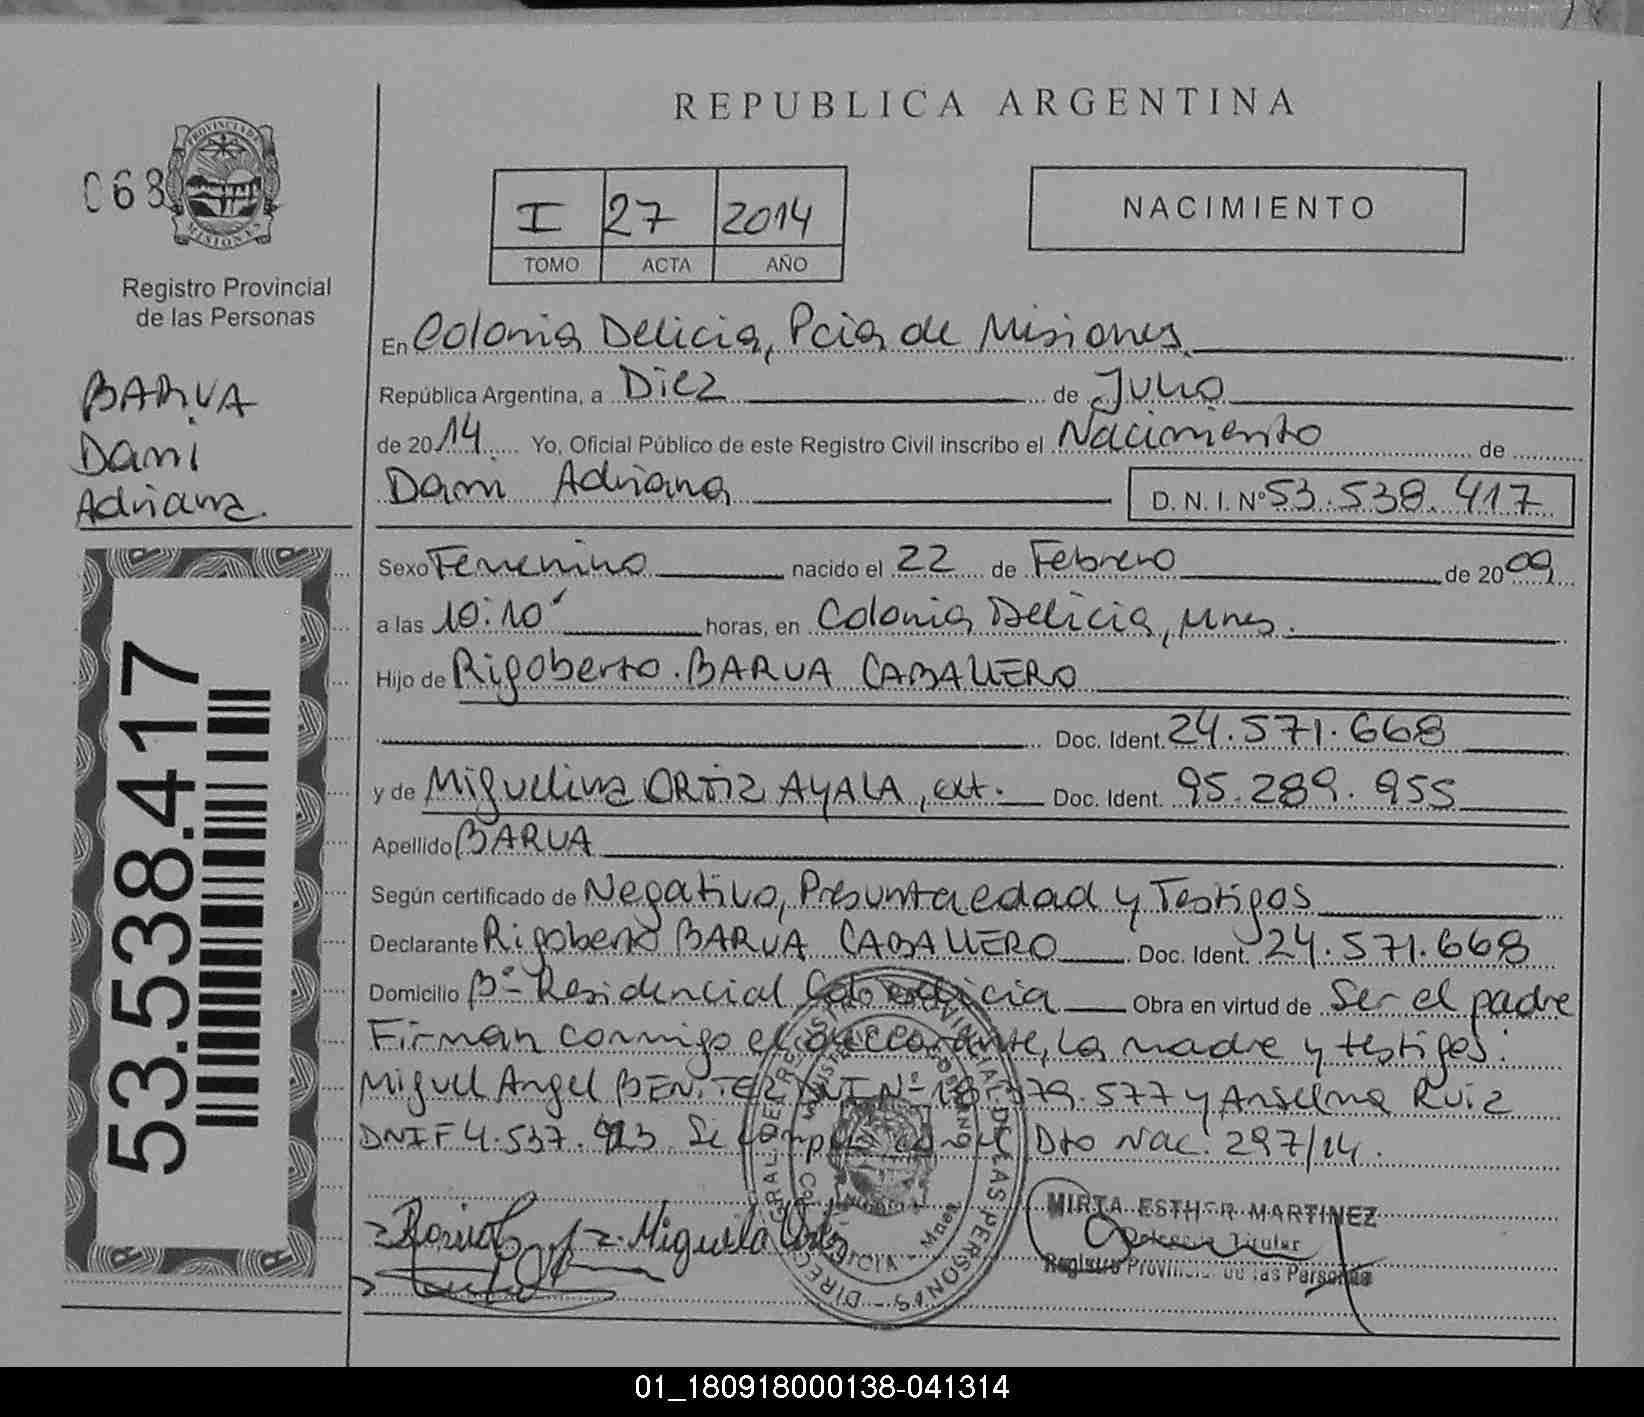 REPUBLICA ARGENTINA
068
PROVINCIA DE
MISIONES
Registro Provincial
de las Personas
I 27 2014
TOMO ACTA AÑO
NACIMIENTO
BARUA
Dami
Adriana.
53.538.417
En Colonia Delicia, Pcia de Misiones
República Argentina, a Diez de Julio
de 2014 Yo, Oficial Público de este Registro Civil inscribo el Nacimiento de
Dami Adriana D.N.I. Nº 53.538.417
Sexo Femenino nacido el 22 de Febrero de 2009
a las 10:10' horas, en Colonia Delicia, Mnes.
Hijo de Rigoberto BARUA CABALLERO
Doc. Ident. 24.571.668
y de Miguelina ORTIZ AYALA, ext. Doc. Ident. 95.289.955
Apellido BARUA
Según certificado de Negativo, Presunta edad y Testigos
Declarante Rigoberto BARUA CABALLERO Doc. Ident. 24.571.668
Domicilio Bº- Residencial Col. Delicia Obra en virtud de Ser el padre
Firman conmigo el declarante, la madre y testigos:
Miguel Angel BENITEZ DNI Nº 18.379.577 y Anselma Ruiz
DNI F 4.537.913 Se Dto Nac. 297/14.
MIRTA ESTHER MARTINEZ
Titular
Registro Provincial de las Personas
01_180918000138-041314